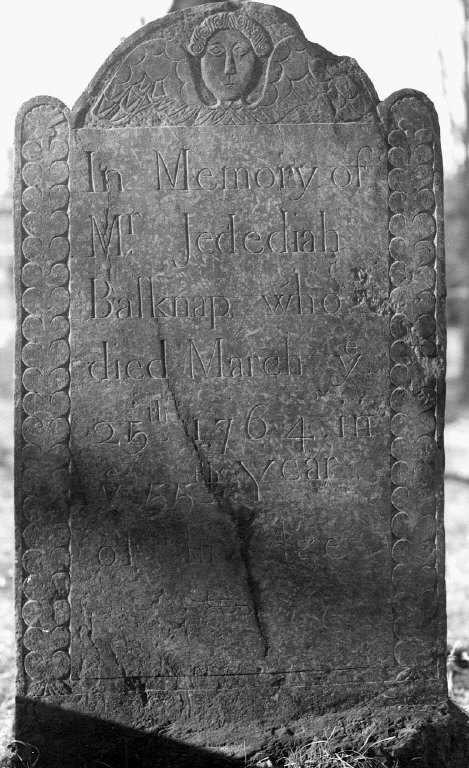 In Memory of
Mr. Jedediah
Balknap, who
died March ye
25th 1764 in
ye 55th Year
of his Age